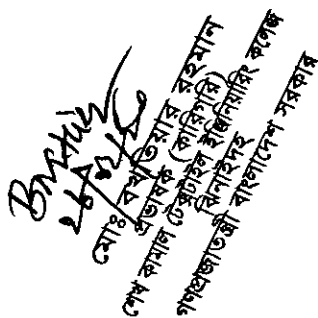 মোঃ বখতিয়ার রহমান
প্রভাষক (কারিগরি)
শেখ কামাল টেক্সটাইল ইঞ্জিনিয়ারিং কলেজ
ঝিনাইদহ
গণপ্রজাতন্ত্রী বাংলাদেশ সরকার